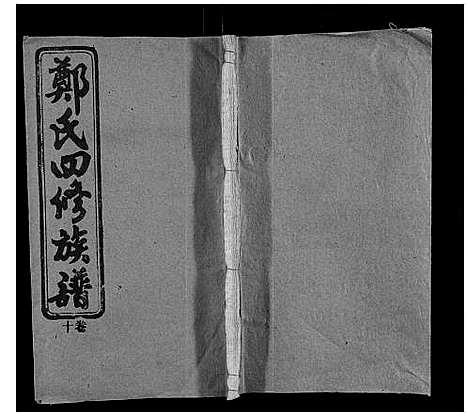 鄭氏四修族譜
卷十